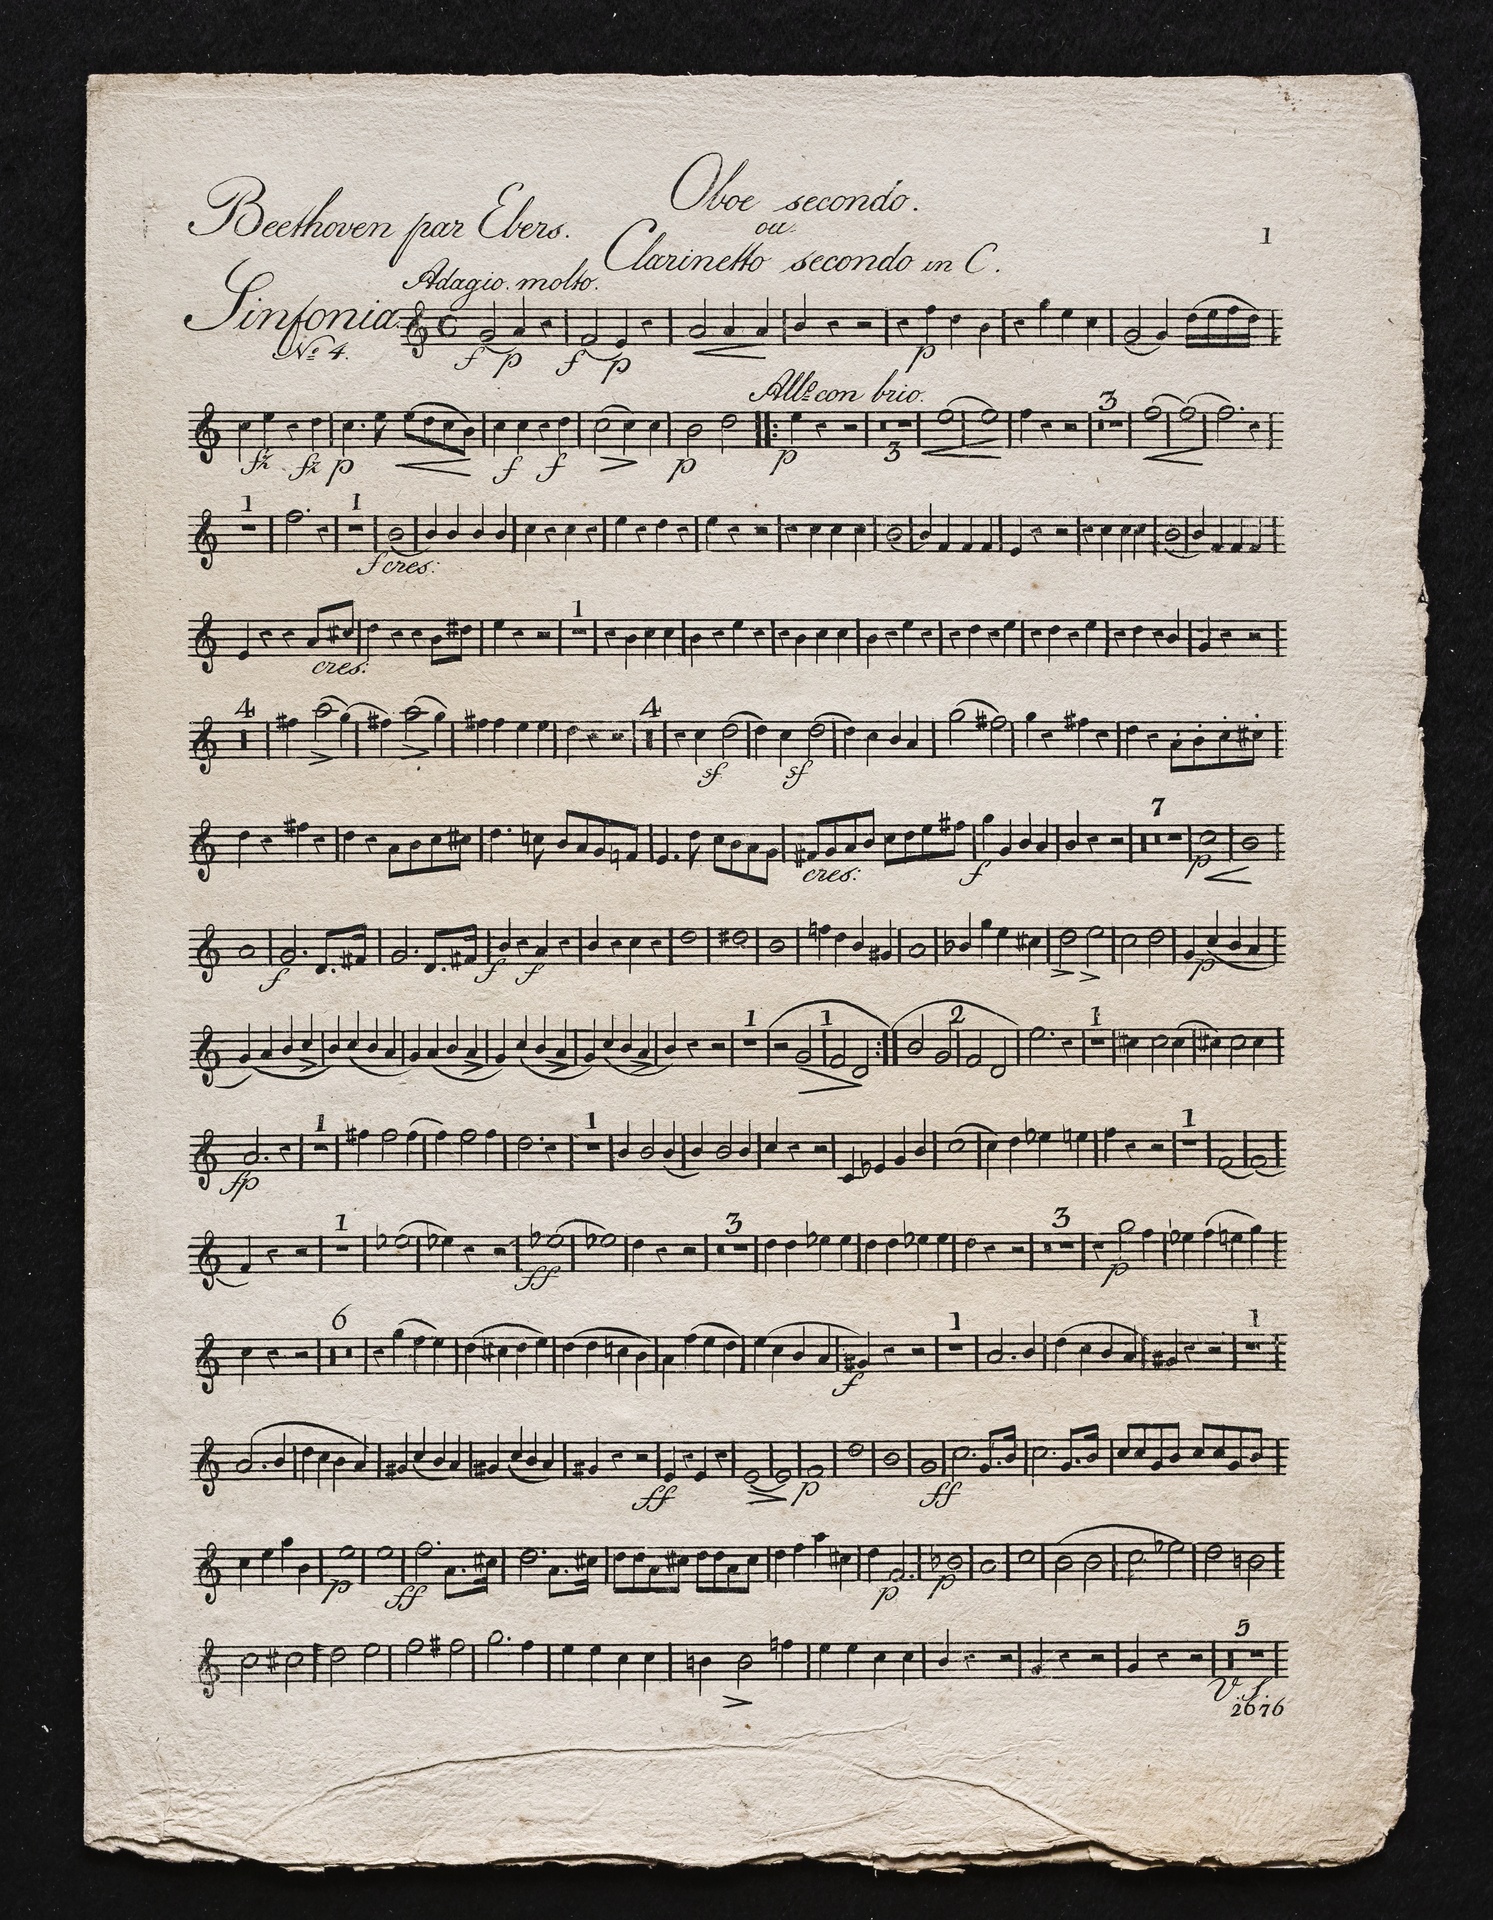 Oboe secondo.
Beethoven par Ebers.
ou
1
Clarinetto secondo in C.
Adagio molto.
Sinfonia
No. 4.
f p f p p
Allo con brio.
3
fz fz p f f p p 3
1 1
f cres:
1
cres:
4 4
sf sf
7
cres: f p
f f f p
1 1 2 1
1 1 1
fp
1 3 3
ff p
6 1 1
f
ff p ff
p ff p p
5
V. S.
2676